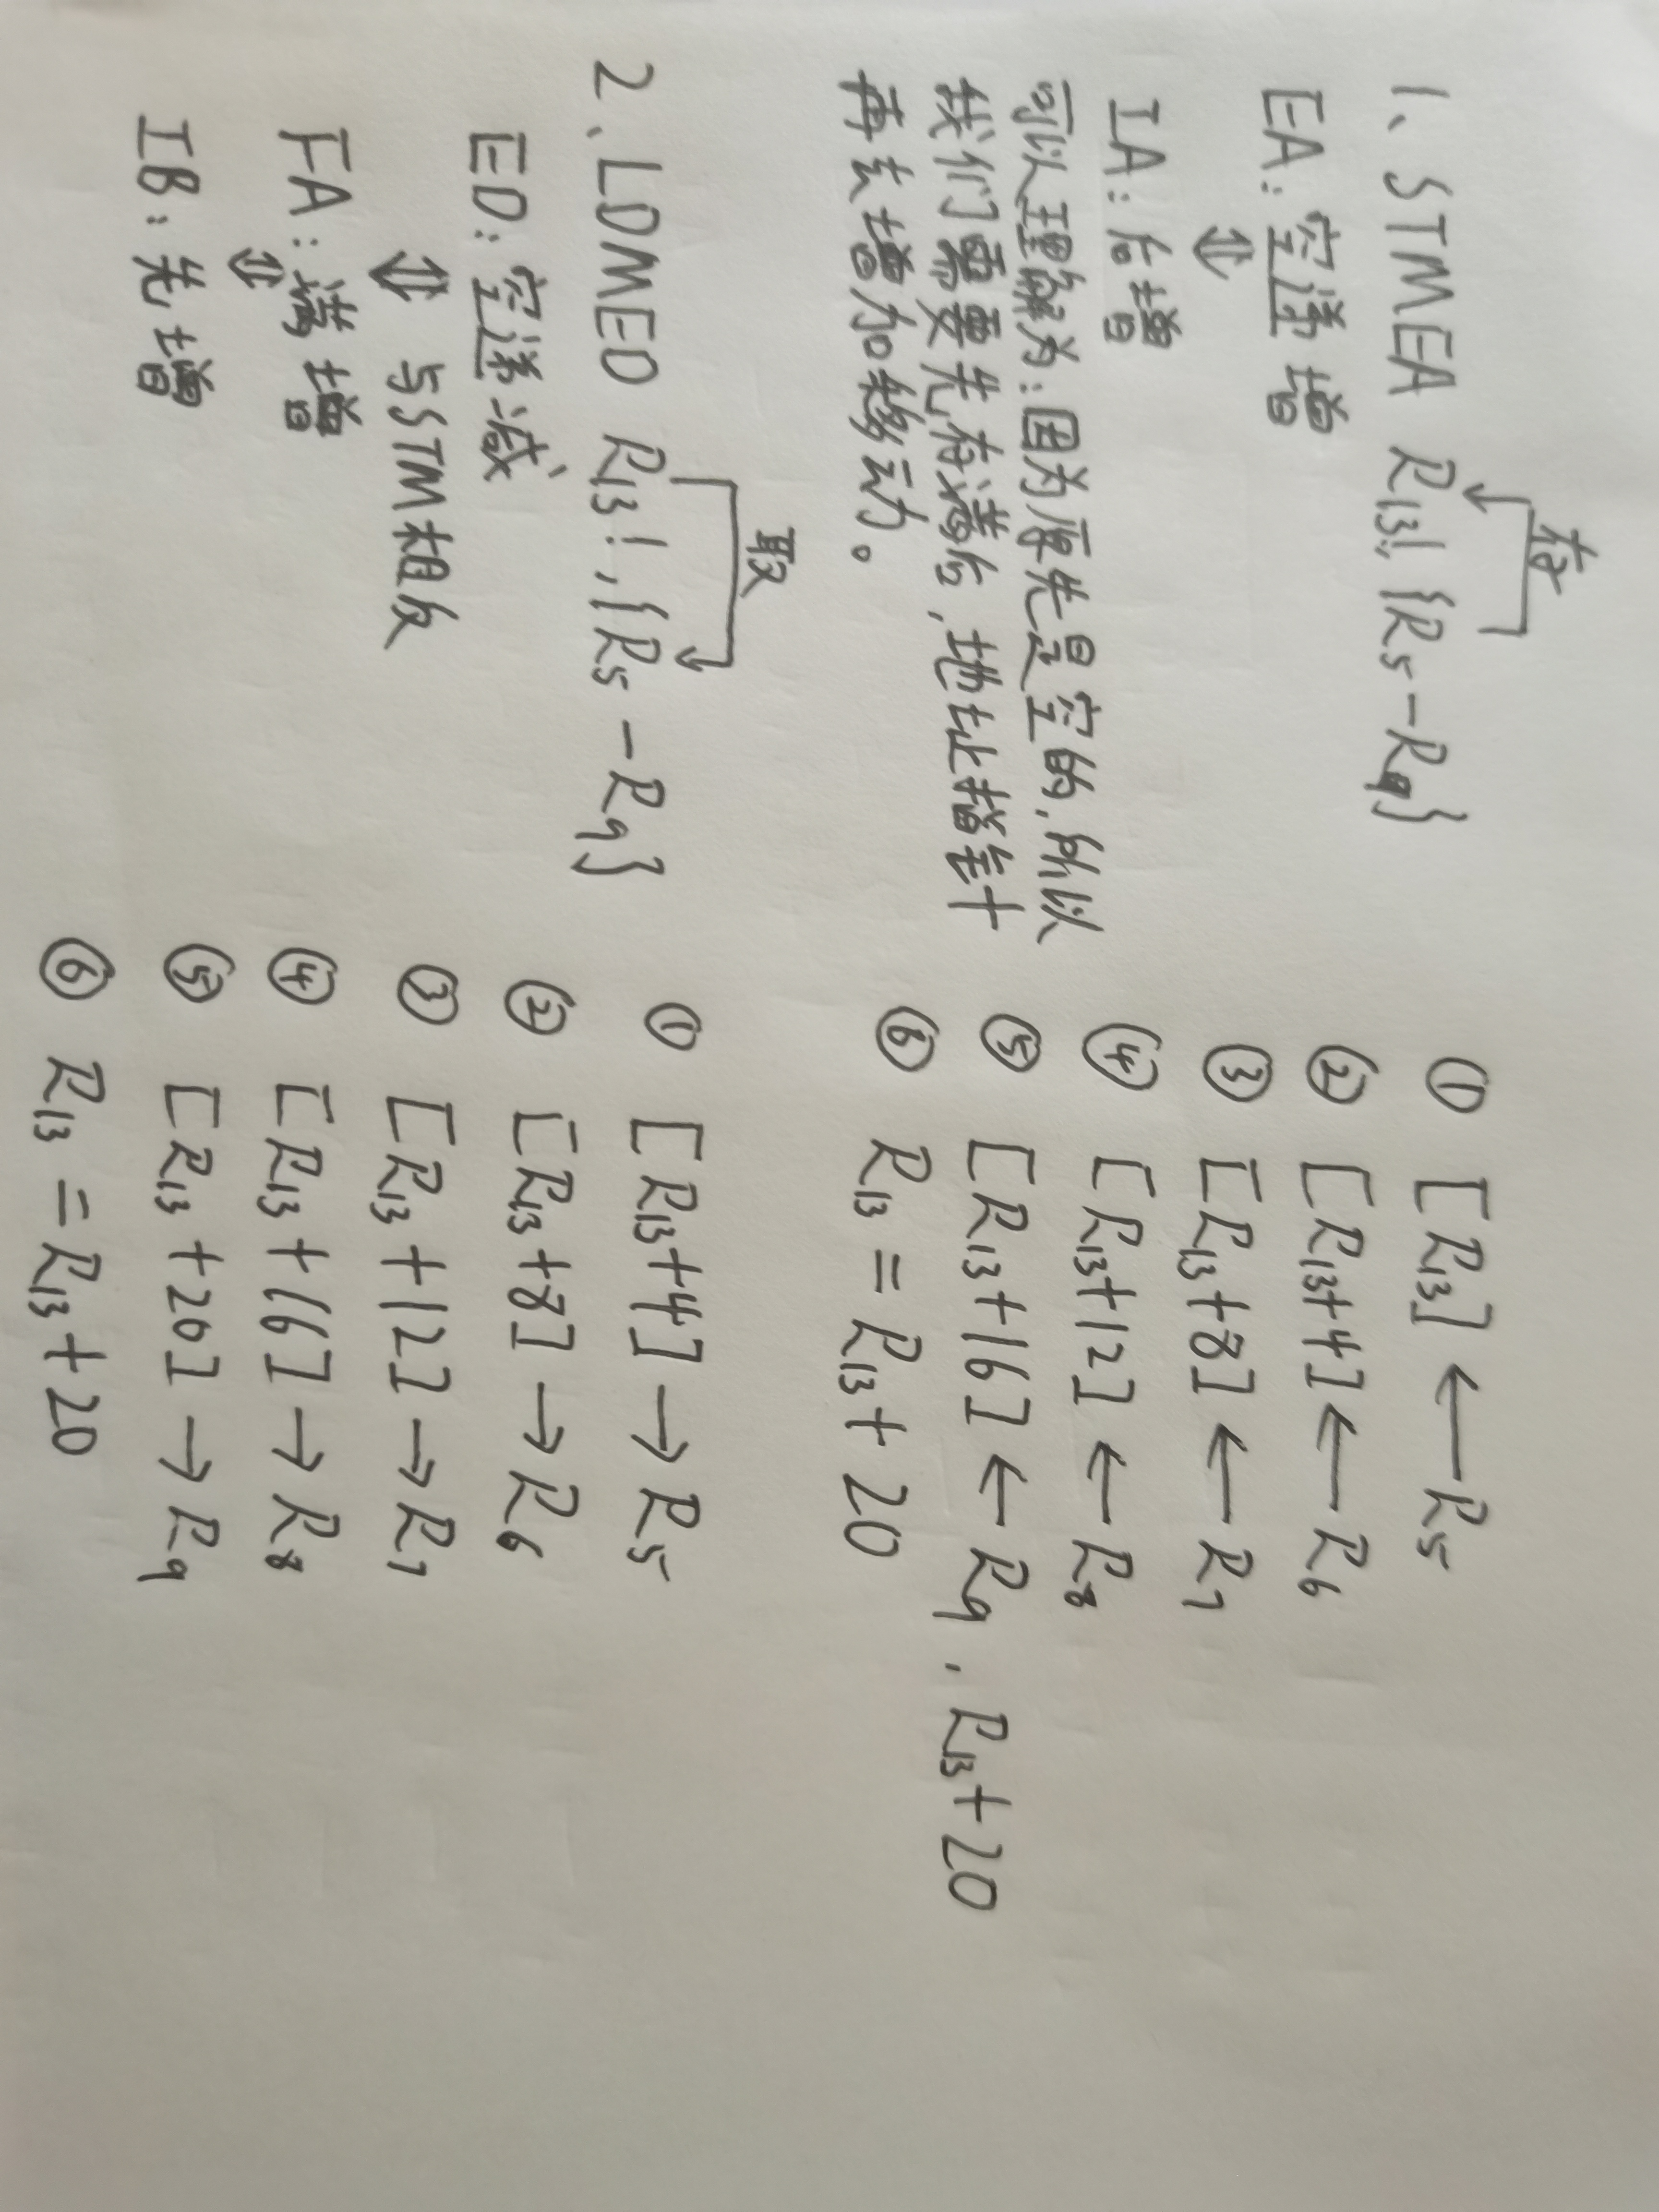 存
1、STMEA R13!,{R5-R9}
EA:空递增
⇕
IA:后增
可以理解为:因为原先是空的,所以
我们需要先存满后,地址指针
再去增加移动。
① [R13] ← R5
② [R13+4] ← R6
③ [R13+8] ← R7
④ [R13+12] ← R8
⑤ [R13+16] ← R9 . R13+20
⑥ R13 = R13+20
取
2、LDMED R13!,{R5-R9}
ED:空递减
⇕ 与STM相反
FA:满增
⇕
IB:先增
① [R13+4] → R5
② [R13+8] → R6
③ [R13+12] → R7
④ [R13+16] → R8
⑤ [R13+20] → R9
⑥ R13 = R13+20